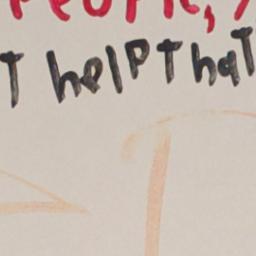 PEOPLE,
T helPT haT